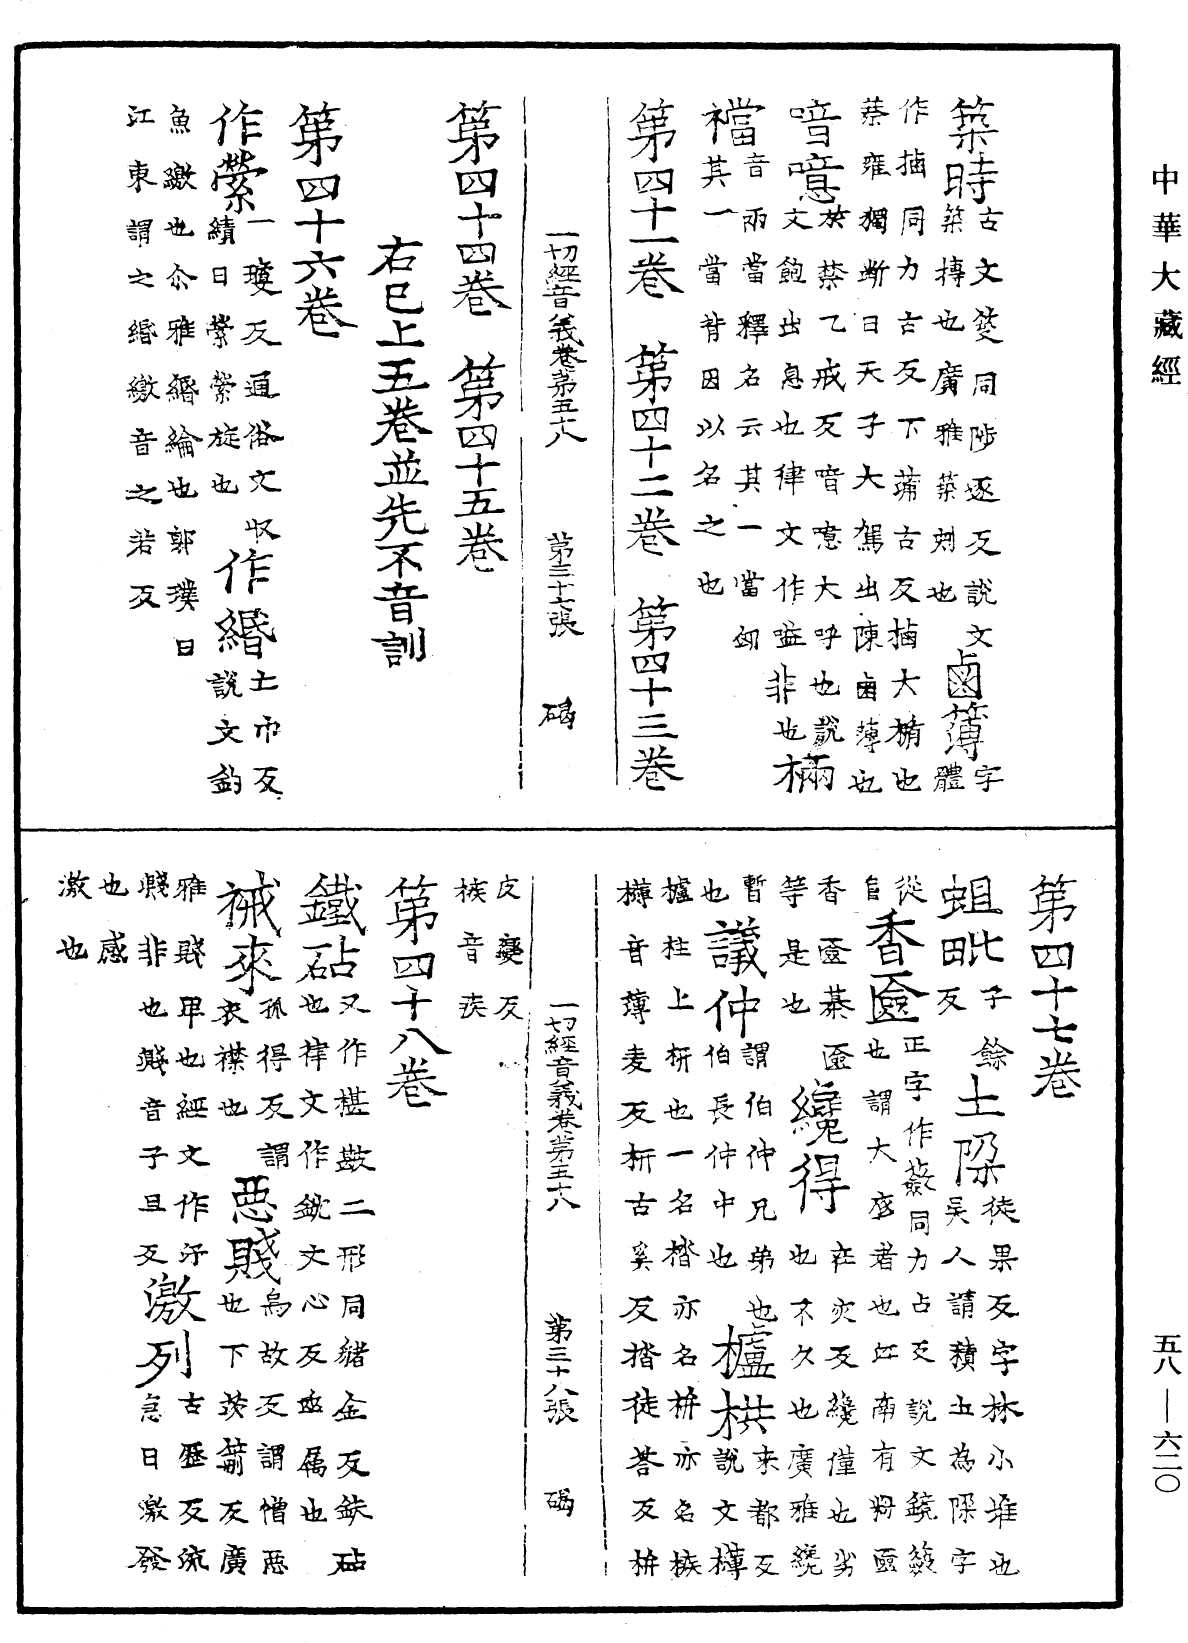 中華大藏經
築時古文䇯同陟逐反說文
築擣也廣雅築刺也鹵簿字體
作㯭同力古反下蒲古反㯭大楯也
蔡雍獨斷曰天子大駕出陳鹵薄也
喑噫於禁乙戒反喑噫大呼也說
文飽出息也律文作嗌非也
裲襠音兩當釋名云其一當匈
其一當背因以名之也
第四十一卷 第四十二卷 第四十三卷
一切經音義卷第五十八 第三十七張 碣
第四十四卷 第四十五卷
右已上五卷並先不音訓
第四十六卷
作縈一瓊反通俗文收
績曰縈縈旋也 作緡亡巾反說文釣
魚繳也尒雅緡綸也郭璞曰
江東謂之緡繳音之若反
第四十七卷
蛆毗子餘反 土墚徒果反字林小堆也
吳人謂積土為墚字
從𨸏 香匳正字作籢同力占反說文鏡籢
也謂大底者也江南有粉匳
香匳棊匳
等是也 纔得在灾反纔僅也劣
也不久也廣雅纔
暫也 議仲謂伯仲兄弟也
伯長仲中也 櫨栱來都反說文欂
櫨柱上枅也一名楷亦名枅亦名㮨
欂音薄麥反枅古奚反㭼徒荅反枅
皮變反
㮨音疾
一切經音義卷第五十八 第三十八張 碣
第四十八卷
鐵砧又作椹㪛二形同豬金反鈇砧
也律文作銳文心反𨦟屬也
祴來孤得反謂
衣襟也 惡賤烏故反謂憎惡
也下茨箭反廣
雅賤卑也經文作汙
濺非也濺音子旦反 激列古歷反流
急曰激發
也感
激也
五八—六二〇